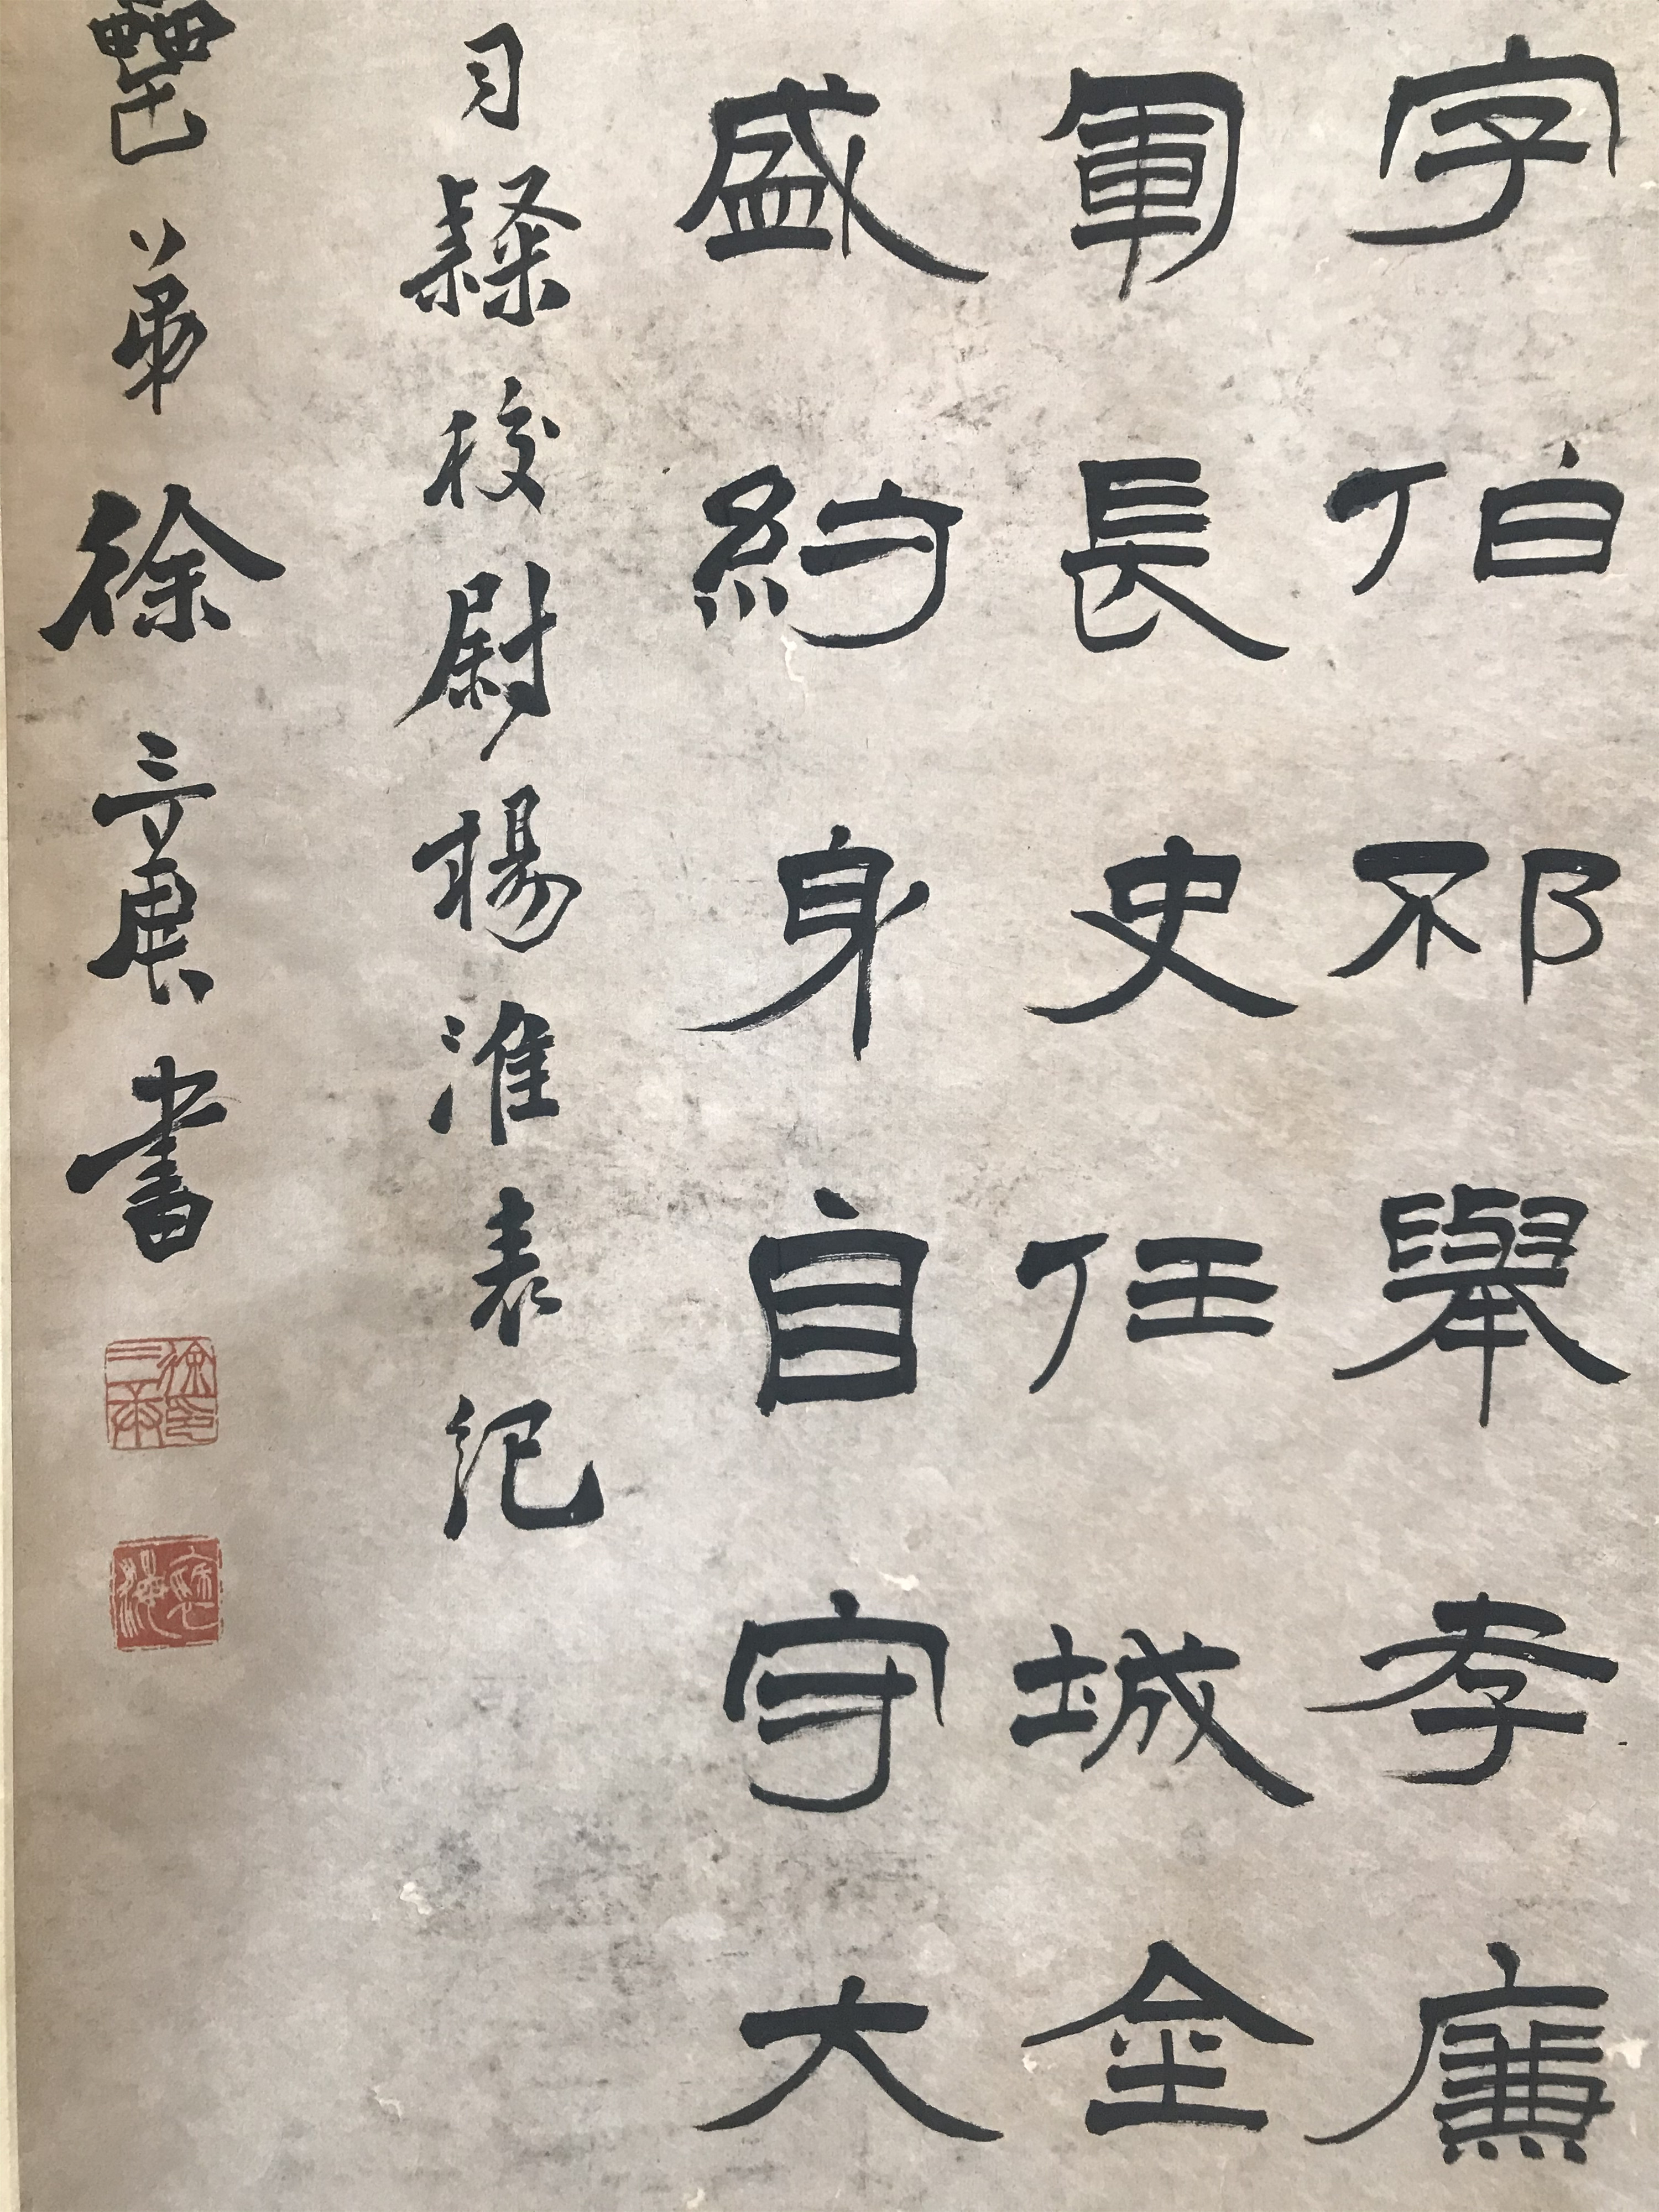 字伯邳舉孝廉
軍長史任城金
盛約身自守大
司隸校尉楊淮表紀
弟徐三庚書
徐印三庚
褎海